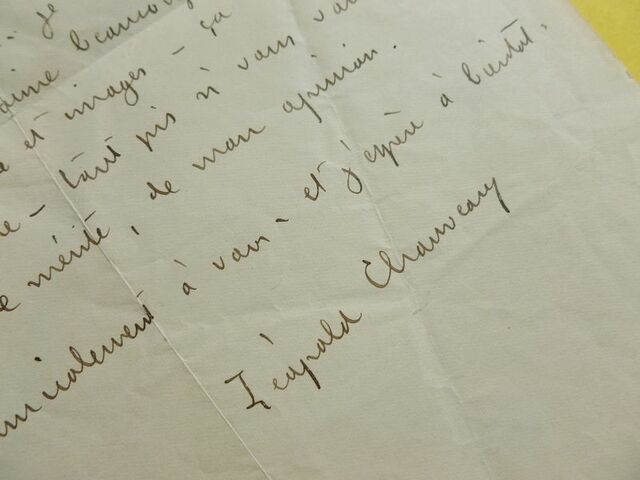 je
aime beaucoup
et images - ça
- tant pis si vous vou
mérite, de mon opinion.
amicalement à vous - et j'espère à bientôt.
Léopold Chauveau